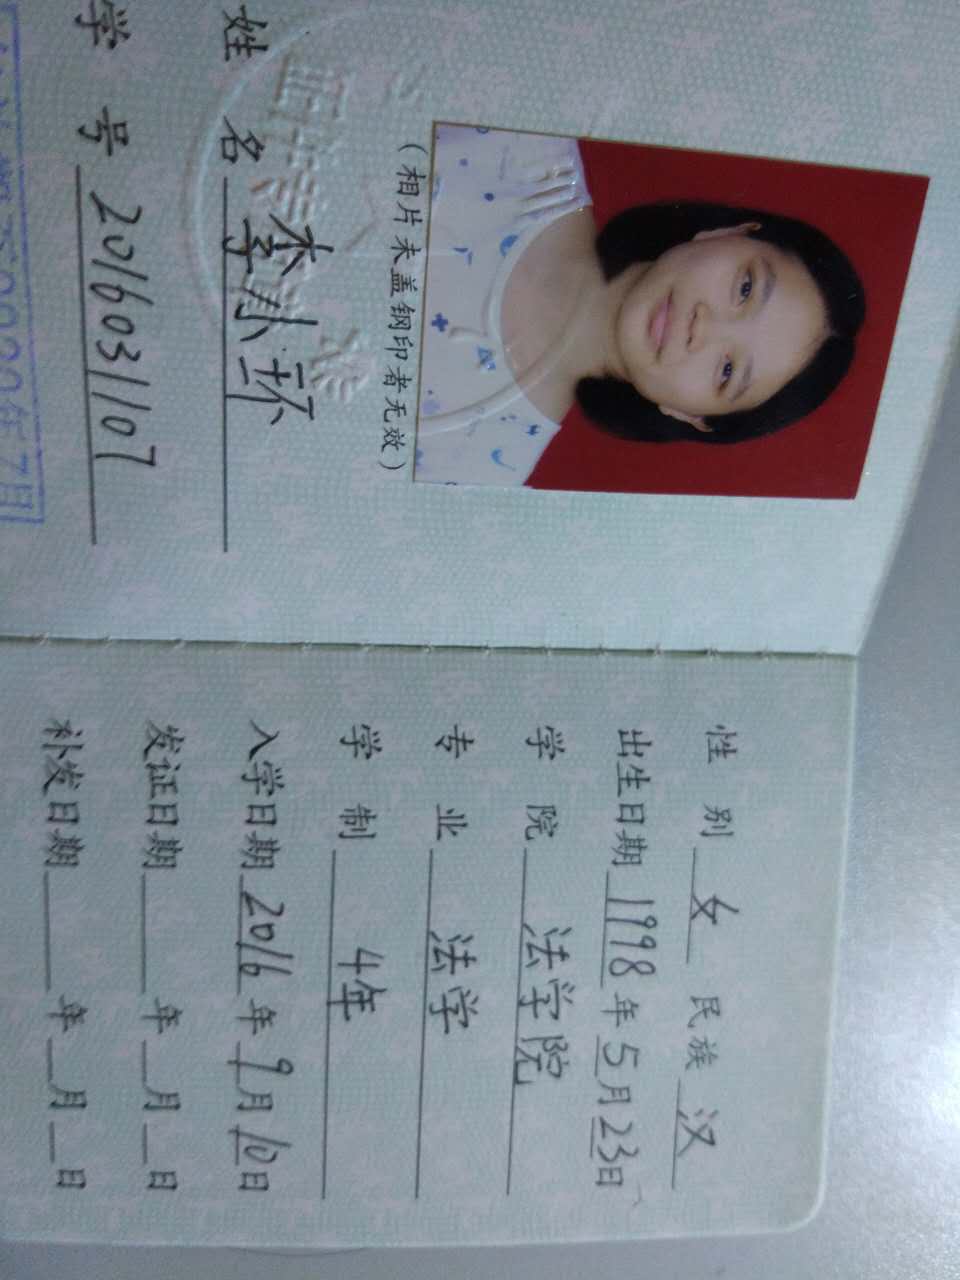 (相片未盖钢印者无效)
姓 名
学 号 201603107
2020年7月
性 别 女 民 族 汉
出生日期 1998 年 5 月 23 日
学 院 法学院
专 业 法学
学 制 4年
入学日期 2016 年 9 月 10 日
发证日期 年 月 日
补发日期 年 月 日